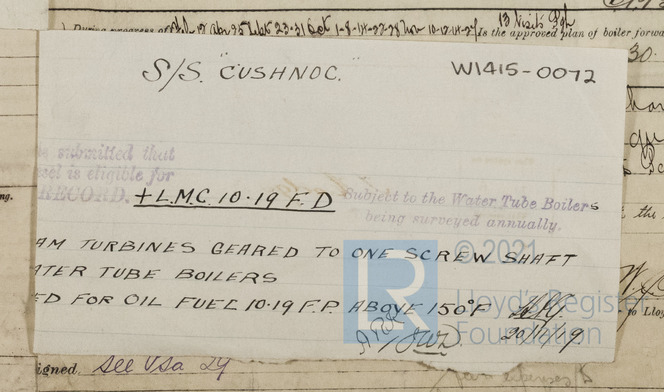 During progress of
is the approved plan of boiler forwa
30.
S/S. "CUSHNOC."
W1415-0072
submitted that
is eligible for
RECORD. + L.M.C. 10.19 F.D Subject to the Water Tube Boilers
being surveyed annually.
AM TURBINES GEARED TO ONE SCREW SHAFT
ATER TUBE BOILERS
ED FOR OIL FUEL 10.19 F.P. ABOVE 150°F
20/11/19
© 2021
Lloyd's Register
Foundation
to Lloy
igned, see